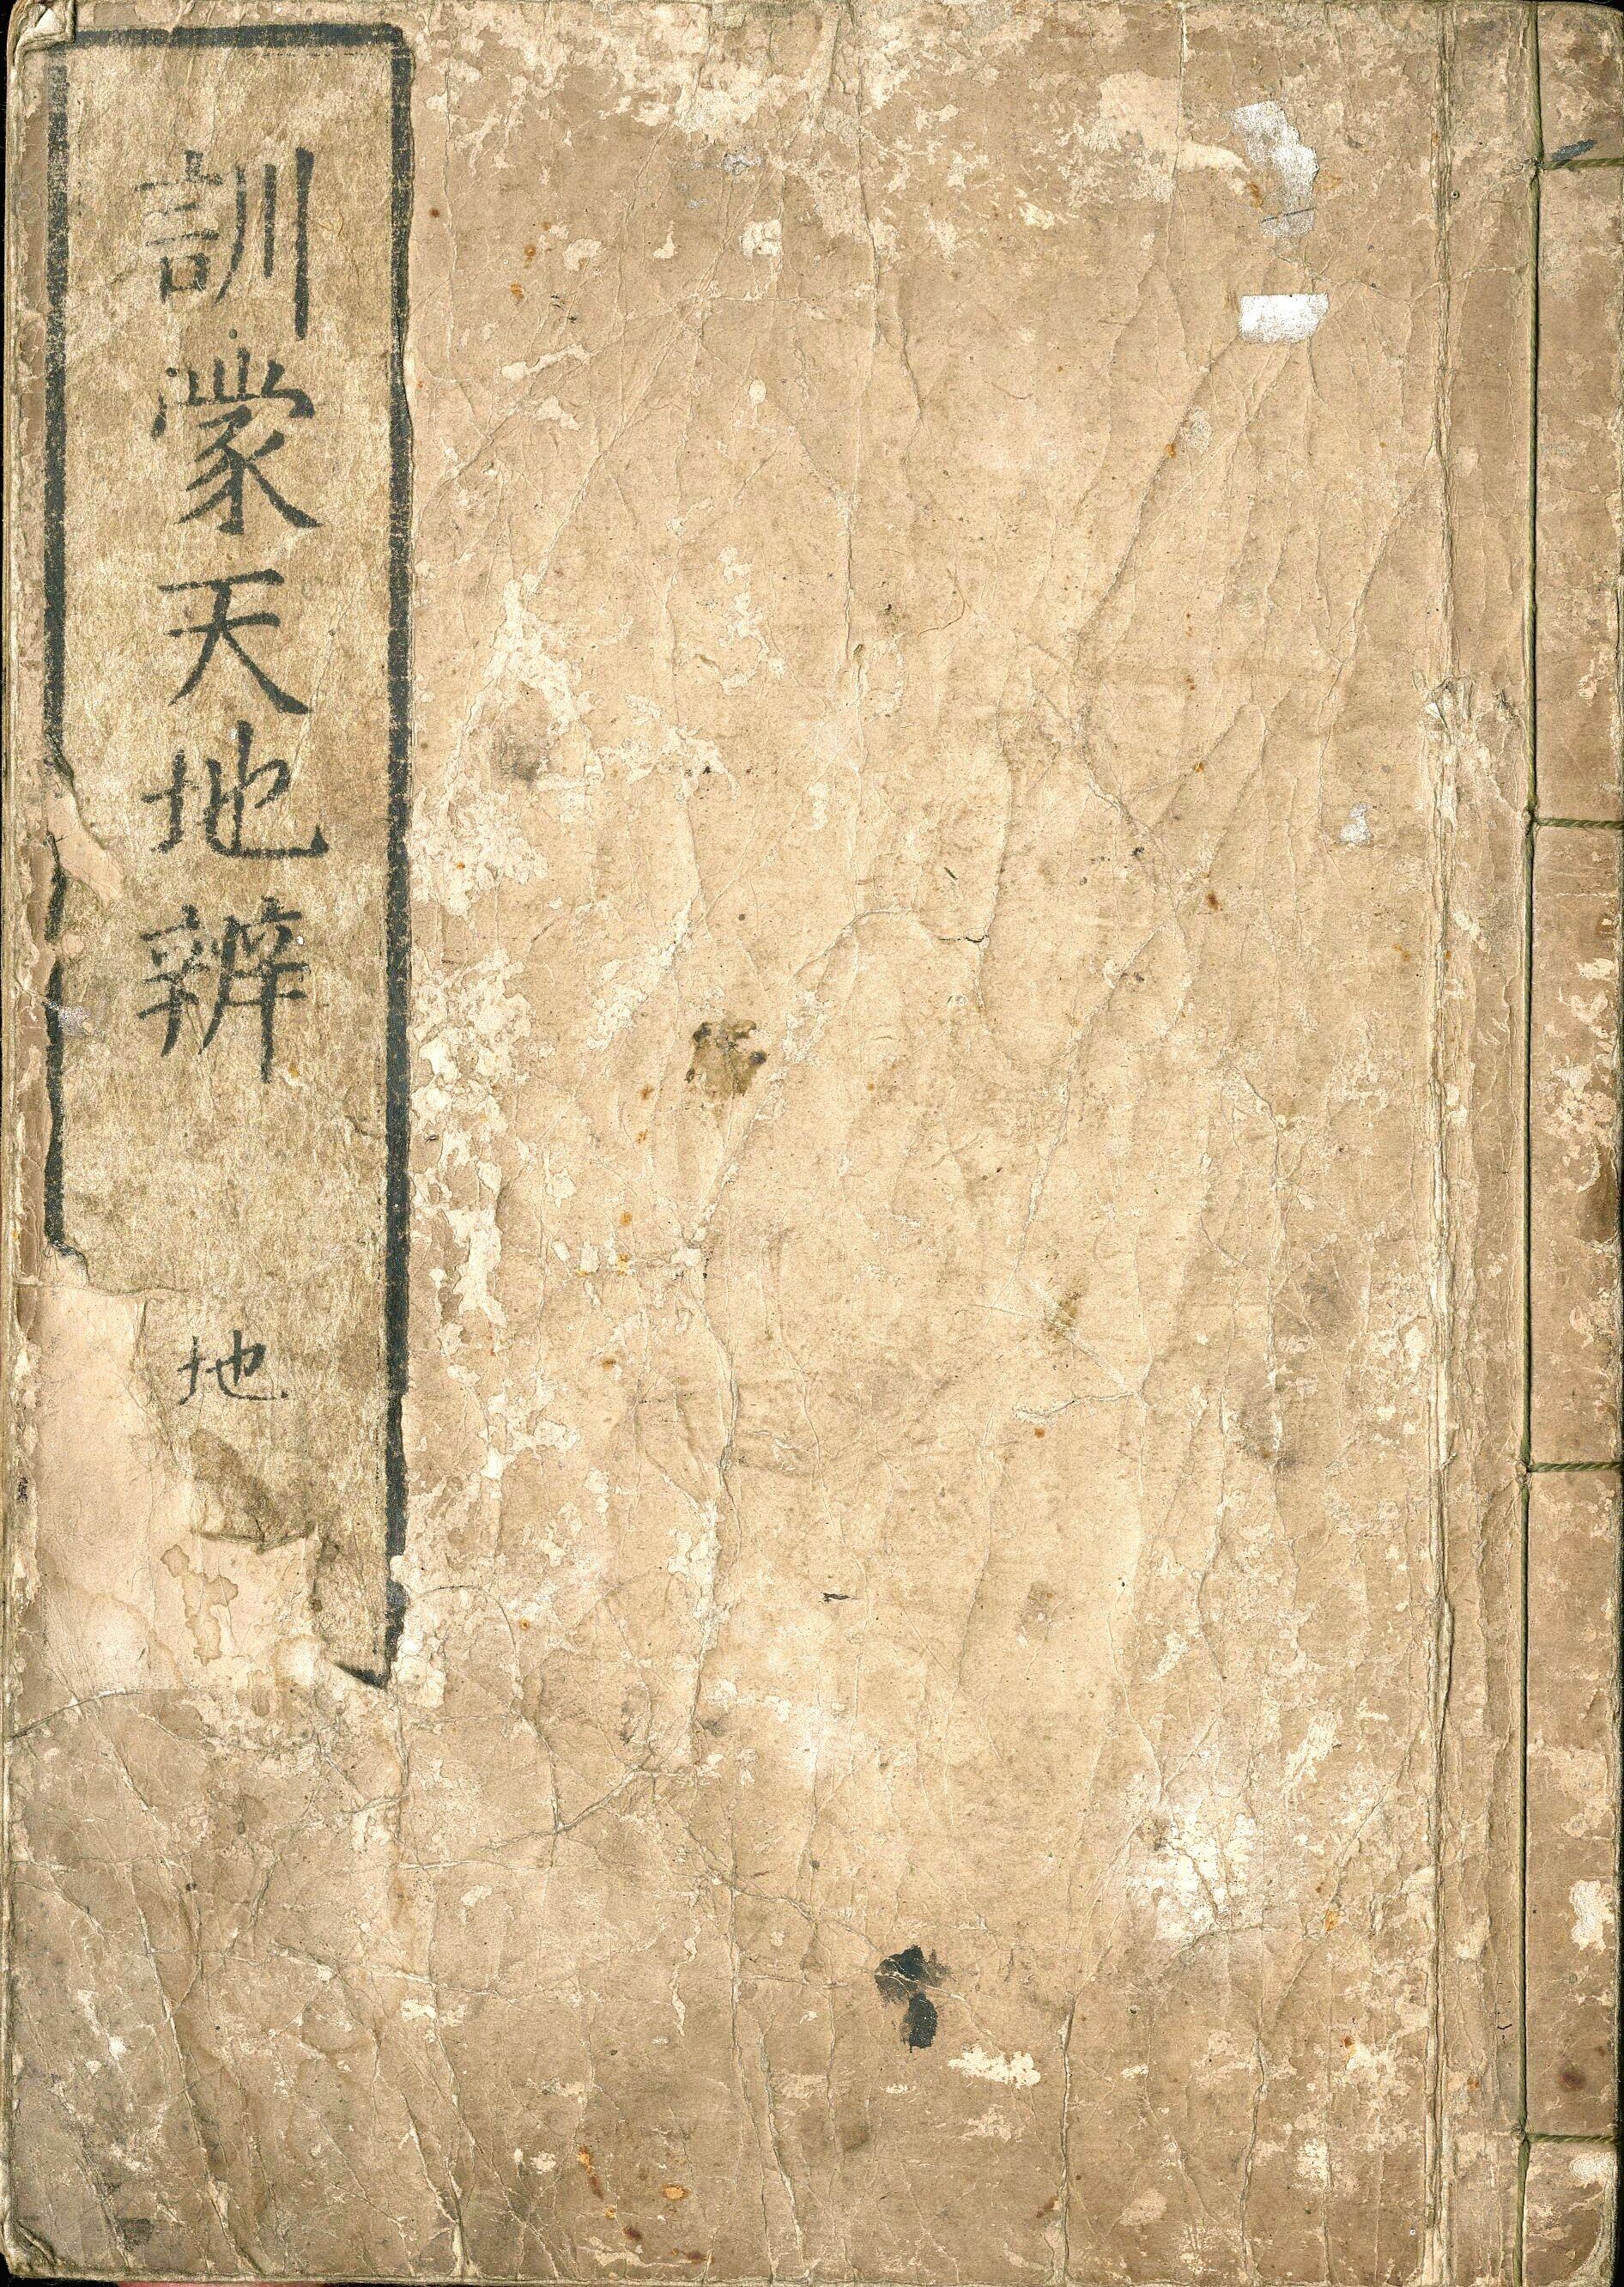 訓蒙天地辨
地